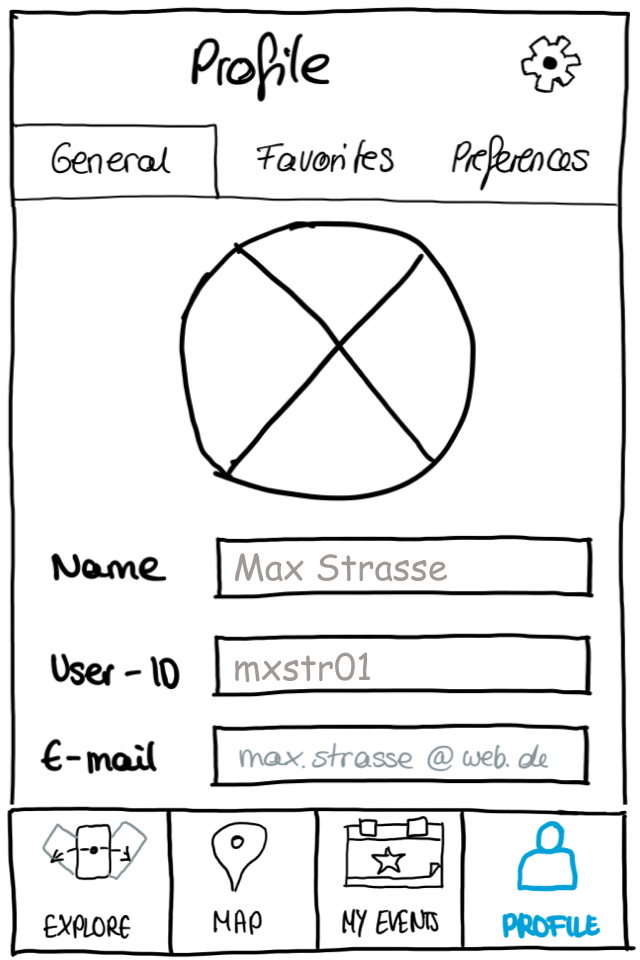 Profile
General Favorites Preferences
Name Max Strasse
User-ID mxstr01
E-mail max.strasse@web.de
EXPLORE MAP MY EVENTS PROFILE